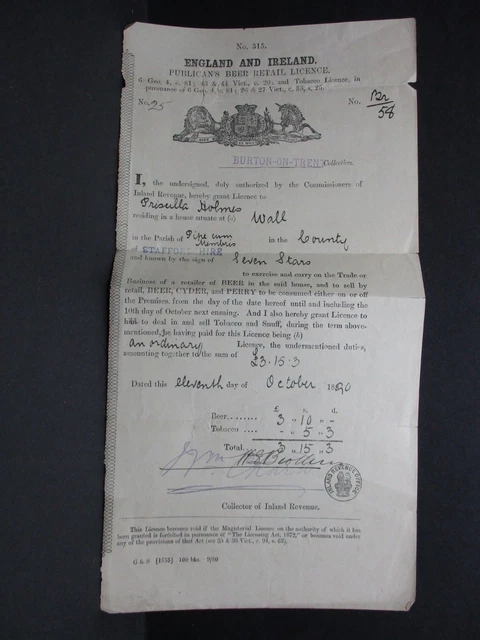 No. 315.
ENGLAND AND IRELAND.
PUBLICAN'S BEER RETAIL LICENCE.
6 Geo. 4, c. 81; 43 & 44 Vict., c. 20; and Tobacco Licence, in
pursuance of 6 Geo. 4, c. 81; 26 & 27 Vict., c. 33, s. 25.
No. 25
No. Br/58
BURTON-ON-TRENT Collection.
I, the undersigned, duly authorized by the Commissioners of
Inland Revenue, hereby grant Licence to
Priscilla Holmes
residing in a house situate at (a) Wall
in the Parish of Pipe cum Membris in the County
of STAFFORDSHIRE
and known by the sign of Seven Stars
to exercise and carry on the Trade or
Business of a retailer of BEER in the said house, and to sell by
retail, BEER, CYDER, and PERRY to be consumed either on or off
the Premises, from the day of the date hereof until and including the
10th day of October next ensuing. And I also hereby grant Licence to
him to deal in and sell Tobacco and Snuff, during the term above-
mentioned, he having paid for this Licence being (b)
an ordinary Licence, the undermentioned duties,
amounting together to the sum of £3.15.3
Dated this eleventh day of October 1890
£ s. d.
Beer........ 3 " 10 " -
Tobacco - " 5 " 3
Total... 3 " 15 " 3
INLAND REVENUE OFFICE
Collector of Inland Revenue.
This Licence becomes void if the Magisterial Licence on the authority of which it has
been granted is forfeited in pursuance of "The Licensing Act, 1872," or becomes void under
any of the provisions of that Act (see 35 & 36 Vict., c. 94, s. 63).
G & S [1535] 100 bks. 9/90